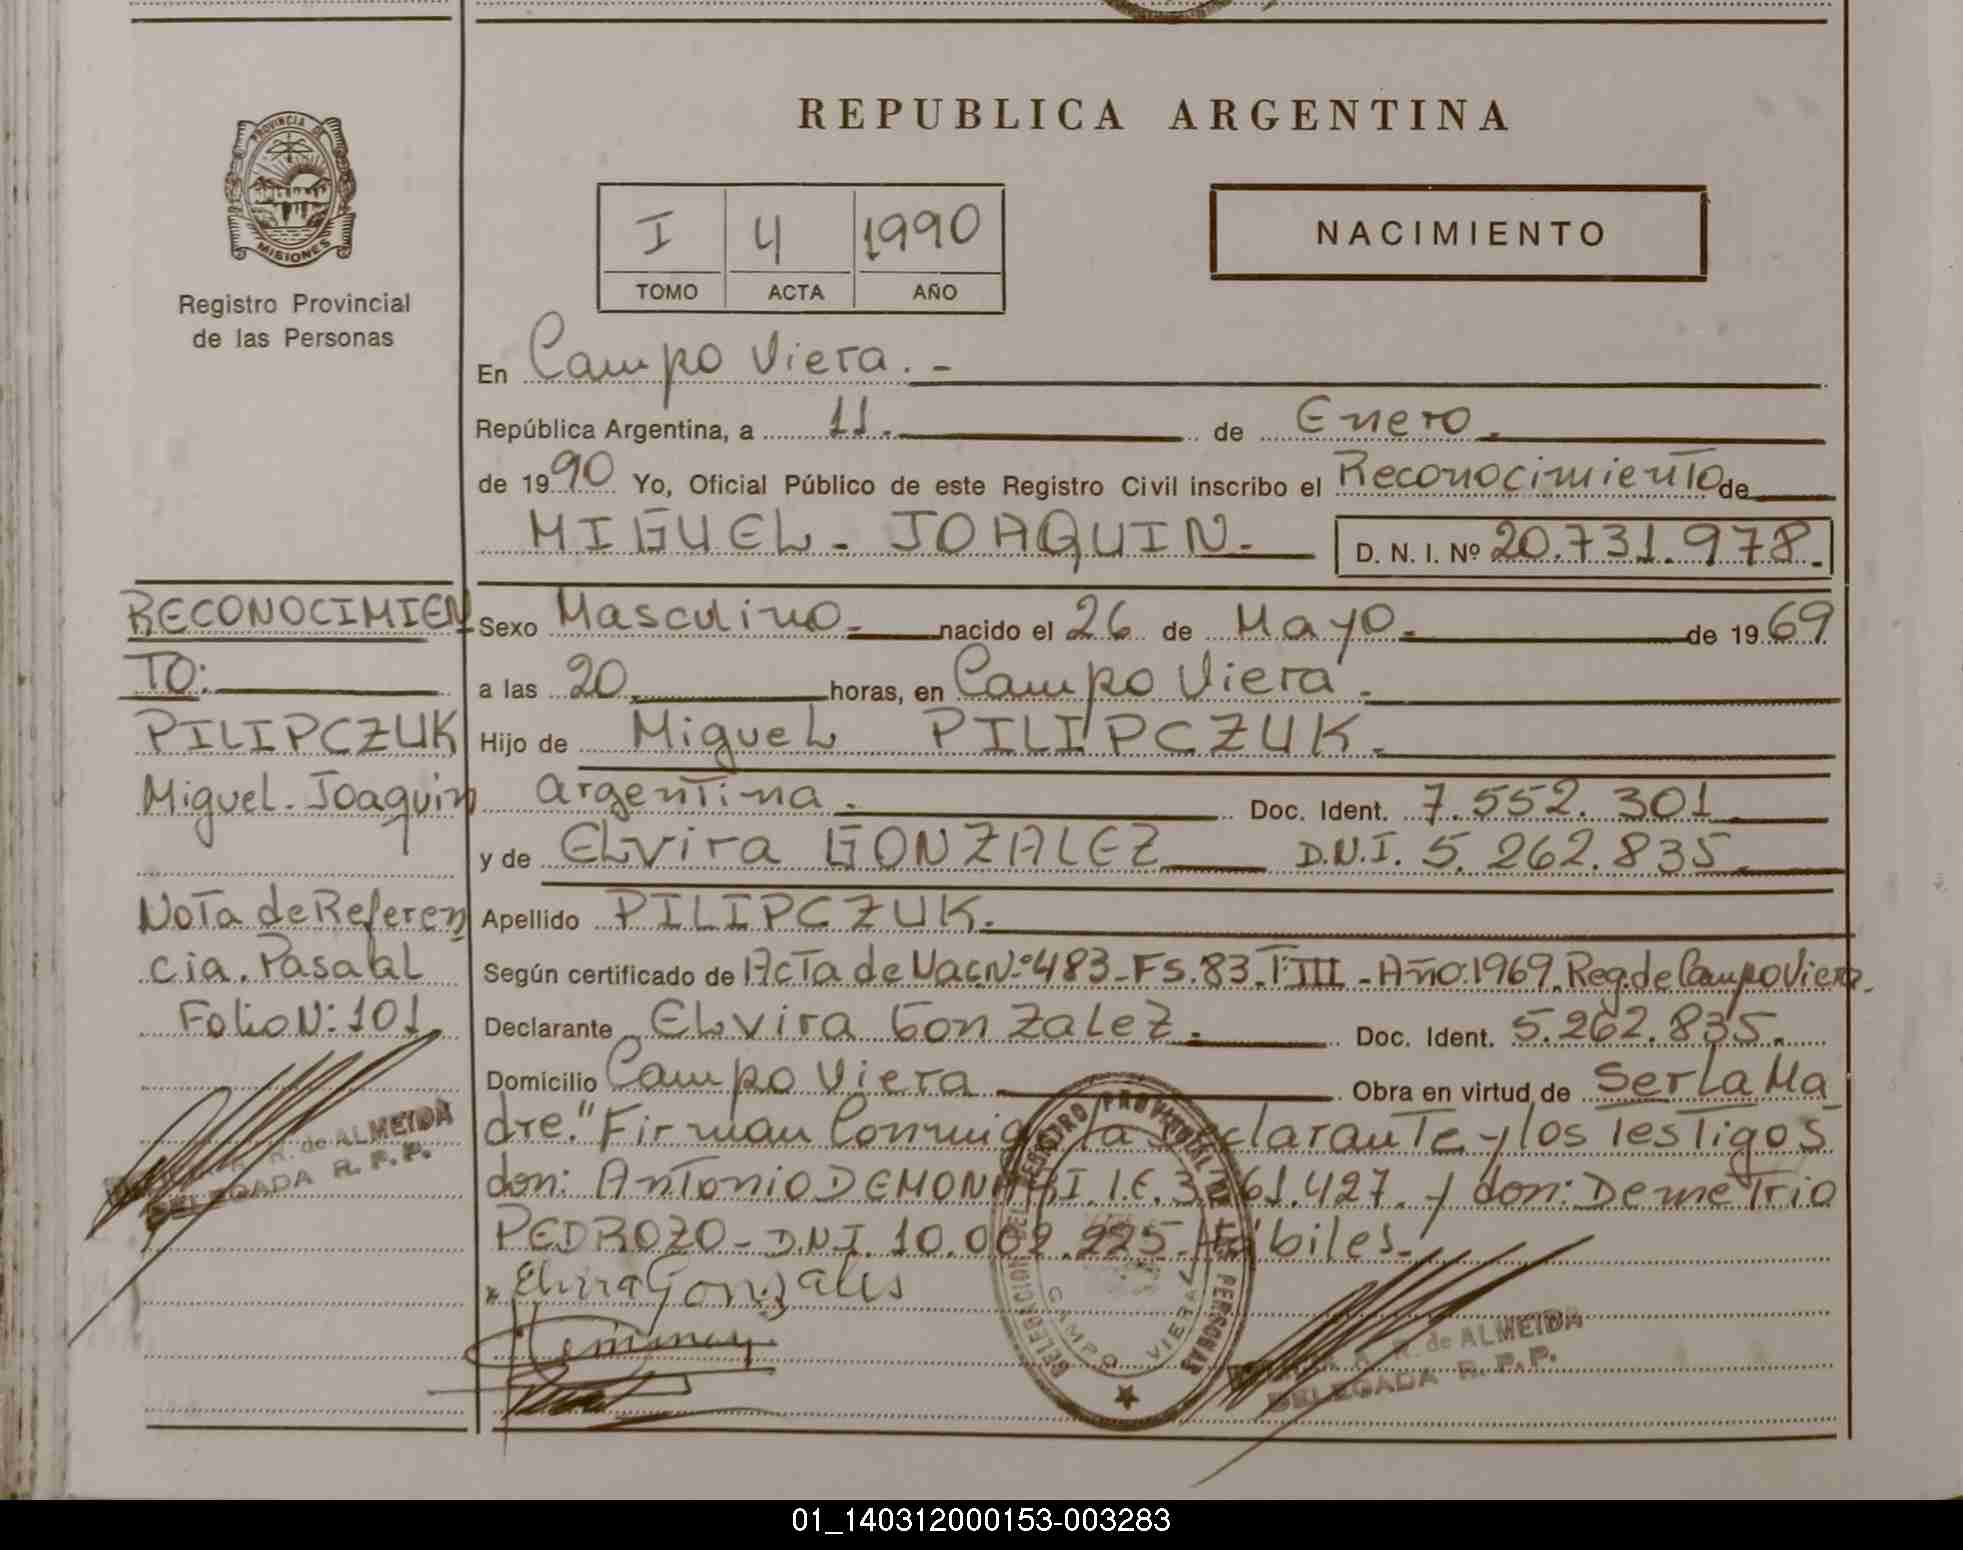 REPUBLICA ARGENTINA
PROVINCIA DE
MISIONES
Registro Provincial
de las Personas
I 4 1990
TOMO ACTA AÑO
NACIMIENTO
En Campo Viera.-
República Argentina, a 11. de Enero.
de 1990 Yo, Oficial Público de este Registro Civil inscribo el Reconocimiento de
MIGUEL - JOAQUIN.- D. N. I. Nº 20.731.978.-
RECONOCIMIEN
TO:
PILIPCZUK
Miguel. Joaquin
Nota de Referen
cia. Pasa al
Folio N: 101
R. de ALMEIDA
DELEGADA R. P. P.
Sexo Masculino.- nacido el 26 de Mayo.- de 1969
a las 20 horas, en Campo Viera.
Hijo de Miguel PILIPCZUK.-
argentina. Doc. Ident. 7.552.301
y de Elvira GONZALEZ D.N.I. 5.262.835.
Apellido PILIPCZUK.
Según certificado de Acta de Nac Nº 483-Fs.83.Tº III - Año:1969. Reg. de Campo Viera.
Declarante Elvira Gonzalez. Doc. Ident. 5.262.835.
Domicilio Campo Viera Obra en virtud de Ser La Ma
dre." Firman Conmigo la declarante y los Testigos
don: Antonio I.E. 61.427. y don: Demetrio
PEDROZO - D.N.I. 10.002.225. Hábiles.-
Elvira Gonzales
DELEGACION DEL REGISTRO PROVINCIAL DE LAS PERSONAS
CAMPO VIERA
R. de ALMEIDA
DELEGADA R. P. P.
01_140312000153-003283